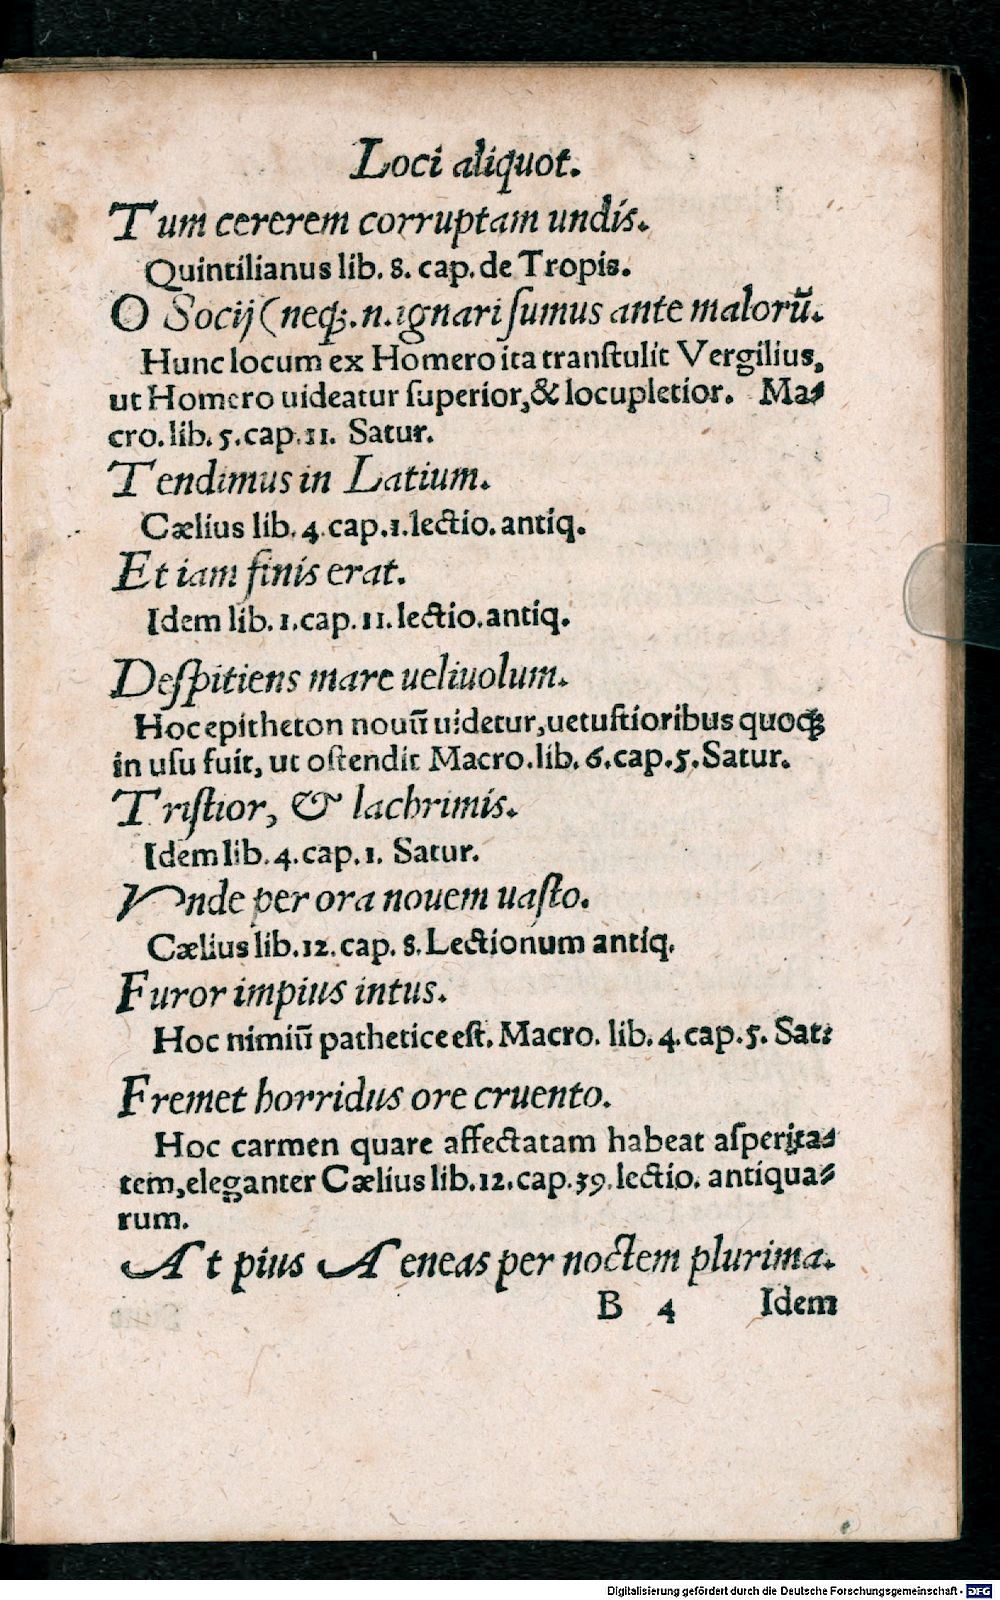 Loci aliquot.
Tum cererem corruptam undis.
Quintilianus lib. 8. cap. de Tropis.
O Socij (neqꝫ.n.ignari ſumus ante malorũ.
Hunc locum ex Homero ita tranſtulit Vergilius,
ut Homero uideatur ſuperior, & locupletior. Ma-
cro. lib. 5. cap. 11. Satur.
Tendimus in Latium.
Cælius lib. 4. cap. 1. lectio. antiq.
Et iam finis erat.
Idem lib. 1. cap. 11. lectio. antiq.
Deſpitiens mare ueliuolum.
Hoc epitheton nouũ uidetur, uetuſtioribus quoqꝫ
in uſu fuit, ut oſtendit Macro. lib. 6. cap. 5. Satur.
Triſtior, & lachrimis.
Idem lib. 4. cap. 1. Satur.
Vnde per ora nouem uaſto.
Cælius lib. 12. cap. 8. Lectionum antiq.
Furor impius intus.
Hoc nimiũ pathetice eſt. Macro. lib. 4. cap. 5. Sat:
Fremet horridus ore cruento.
Hoc carmen quare affectatam habeat aſperita-
tem, eleganter Cælius lib. 12. cap. 59. lectio. antiqua-
rum.
At pius Aeneas per noctem plurima.
B 4 Idem
Digitalisierung gefördert durch die Deutsche Forschungsgemeinschaft - DFG